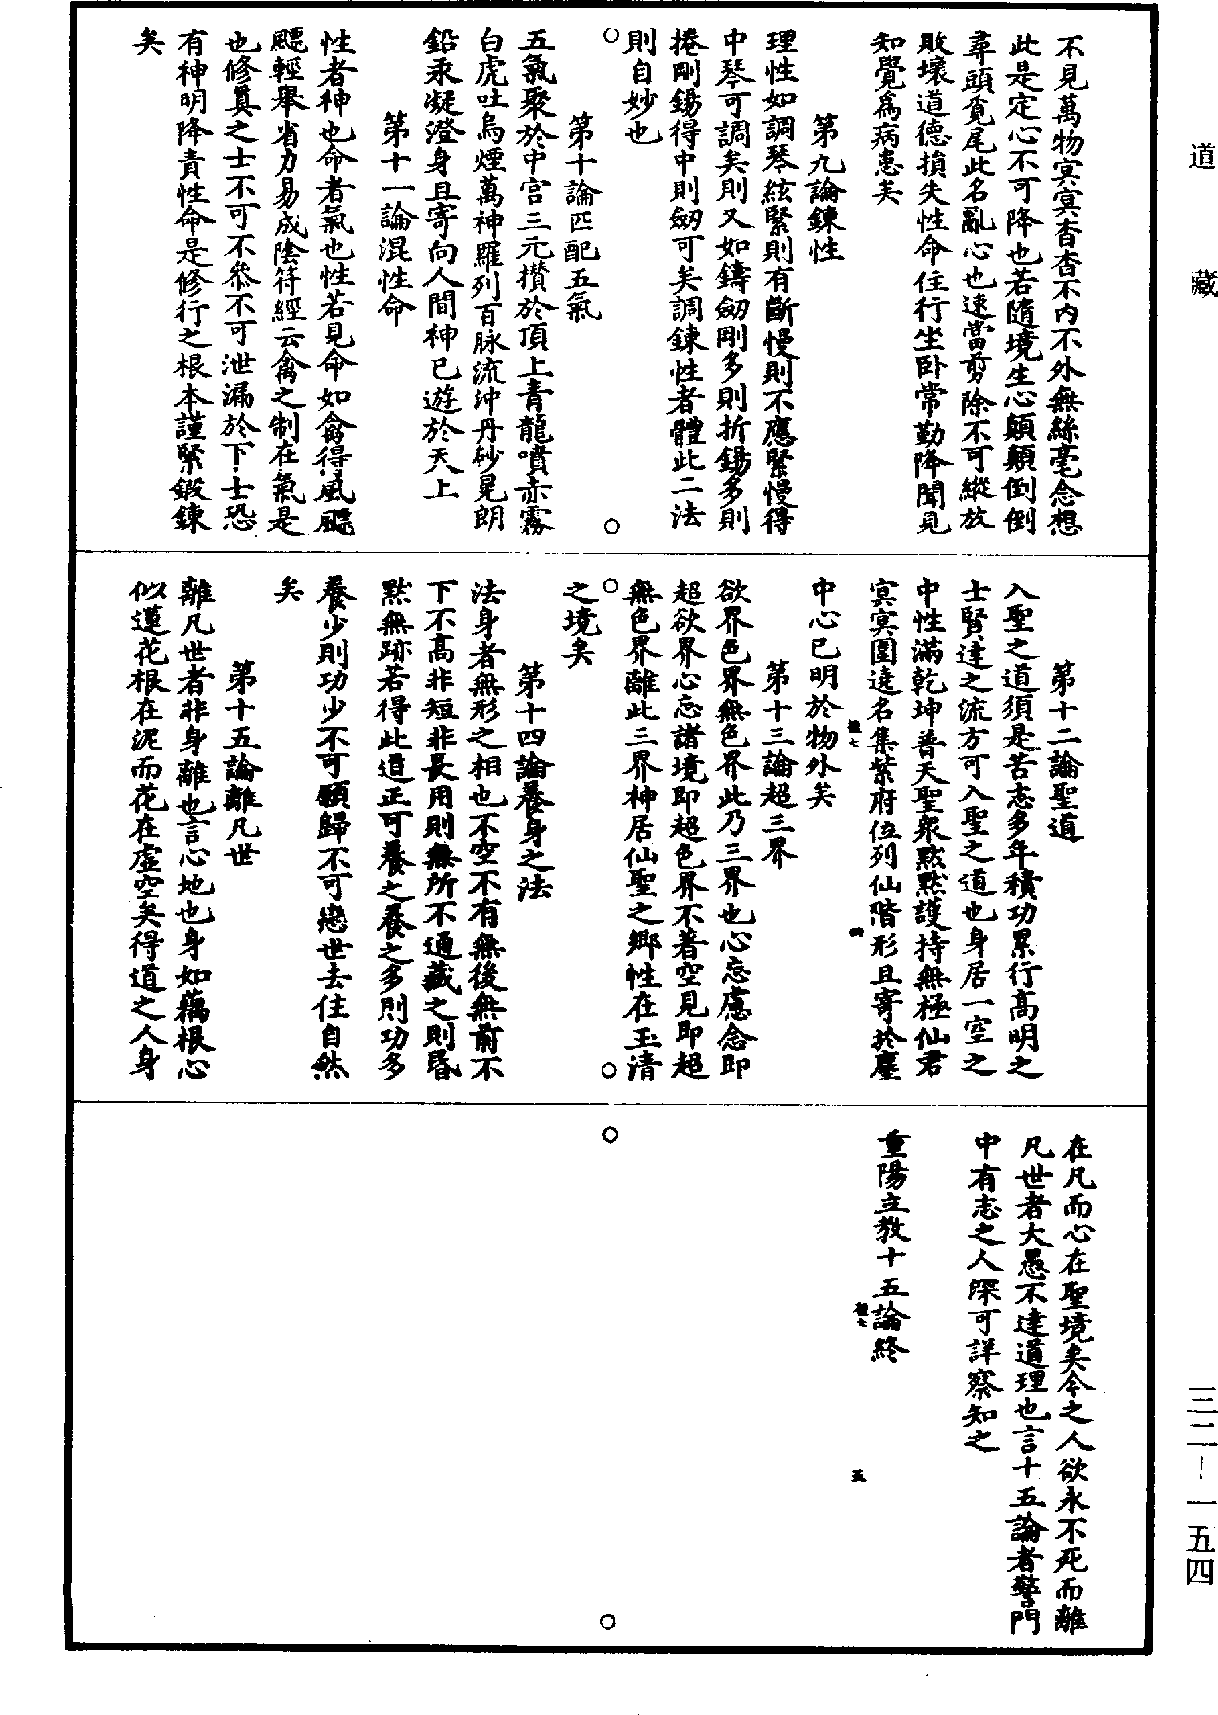 道藏
不見萬物冥冥杳杳不内不外無絲毫念想
此是定心不可降也若隨境生心顛顛倒倒
尋頭覓尾此名亂心也速當剪除不可縱放
敗壞道德損失性命住行坐卧常勤降聞見
知覺為病患矣
第九論鍊性
理性如調琴絃緊則有斷慢則不應緊慢得
中琴可調矣則又如鑄劒剛多則折錫多則
捲剛錫得中則劒可矣調鍊性者體此二法
則自妙也
第十論匹配五氣
五氣聚於中宮三元攢於頂上青龍噴赤霧
白虎吐烏煙萬神羅列百脉流沖丹砂晃朗
鉛汞凝澄身且寄向人間神已遊於天上
第十一論混性命
性者神也命者氣也性若見命如禽得風飄
飄輕舉省力易成陰符經云禽之制在氣是
也修真之士不可不叅不可泄漏於下士恐
有神明降責性命是修行之根本謹緊鍛鍊
矣
第十二論聖道
入聖之道須是苦志多年積功累行高明之
士賢達之流方可入聖之道也身居一室之
中性滿乾坤普天聖衆黙黙護持無極仙君
冥冥圍遶名集紫府位列仙階形且寄於塵
中心已明於物外矣
第十三論超三界
欲界色界無色界此乃三界也心忘慮念即
超欲界心忘諸境即超色界不著空見即超
無色界離此三界神居仙聖之鄉性在玉清
之境矣
第十四論養身之法
法身者無形之相也不空不有無後無前不
下不高非短非長用則無所不通藏之則昏
黙無跡若得此道正可養之養之多則功多
養少則功少不可願歸不可戀世去住自然
矣
第十五論離凡世
離凡世者非身離也言心地也身如藕根心
似蓮花根在泥而花在虛空矣得道之人身
四
在凡而心在聖境矣今之人欲永不死而離
凡世者大愚不達道理也言十五論者警門
中有志之人深可詳察知之
重陽立教十五論終
五
三二-一五四